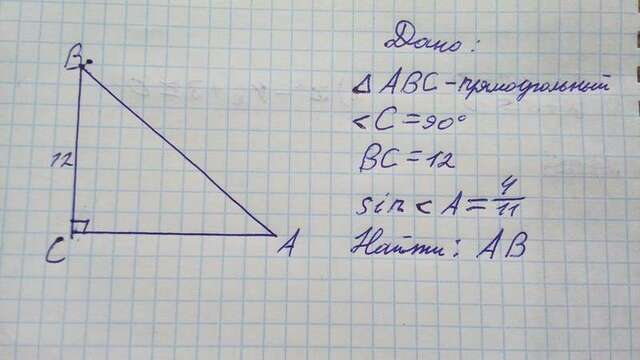 B
12
C
A
Дано:
Δ ABC - прямоугольный
< C = 90°
BC = 12
sin < A = 4/11
Найти: AB